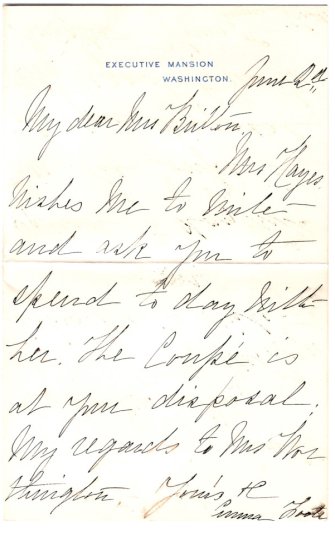 EXECUTIVE MANSION
WASHINGTON.
June 2nd
My dear Mrs
Mrs Hayes
wishes me to write
and ask you to
spend to day with
her. The Coupé is
at your disposal.
My regards to Mrs Wor
thington. Yours &c
Emma Foote